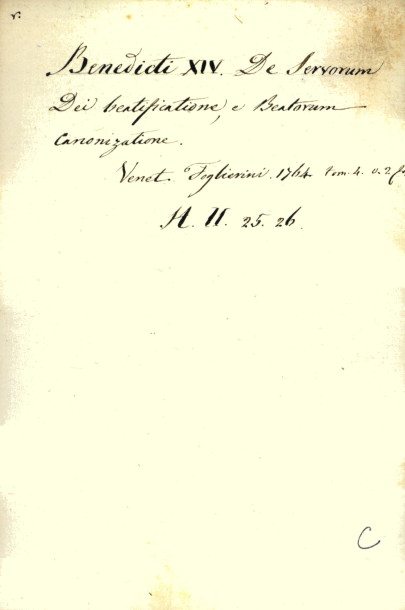 r.
Benedicti XIV. De Servorum
Dei beatificatione, e Beatorum
Canonizatione.
Venet. Foglierini. 1764 tom. 4. v. 2
A. II. 25. 26.
C